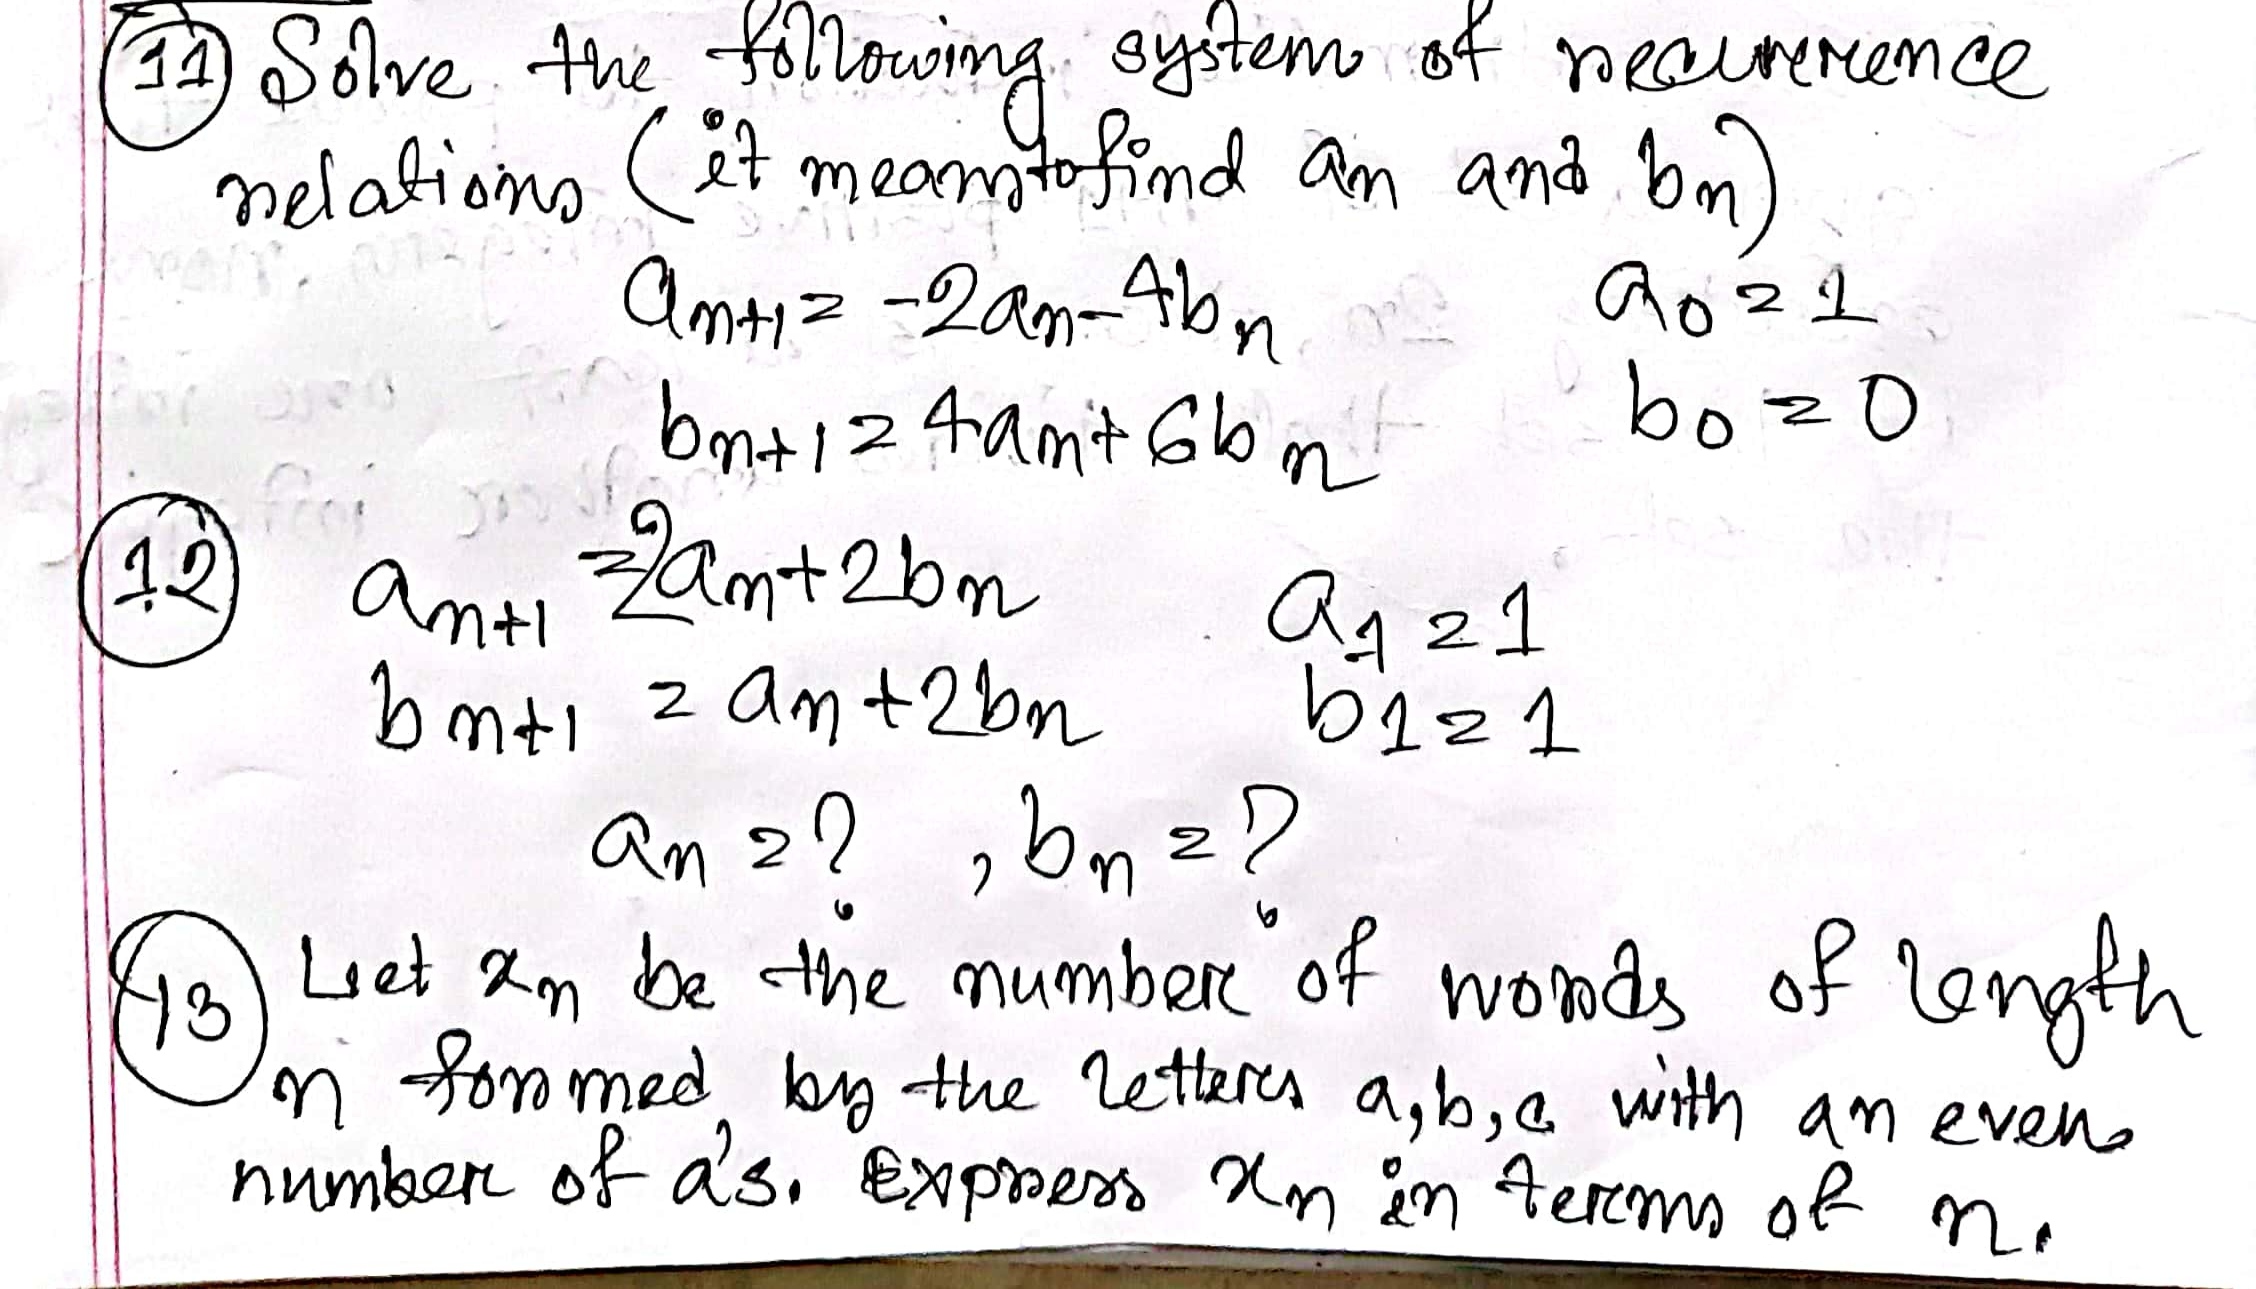 11 Solve the following system of recurrence
relations (it means to find an and bn)
an+1 = -2an - 4bn a0 = 1
bn+1 = 4an + 6bn b0 = 0
12 an+1 = 2an + 2bn a1 = 1
bn+1 = an + 2bn b1 = 1
an = ? , bn = ?
13 Let xn be the number of words of length
n formed by the letters a, b, c with an even
number of a's. Express xn in terms of n.